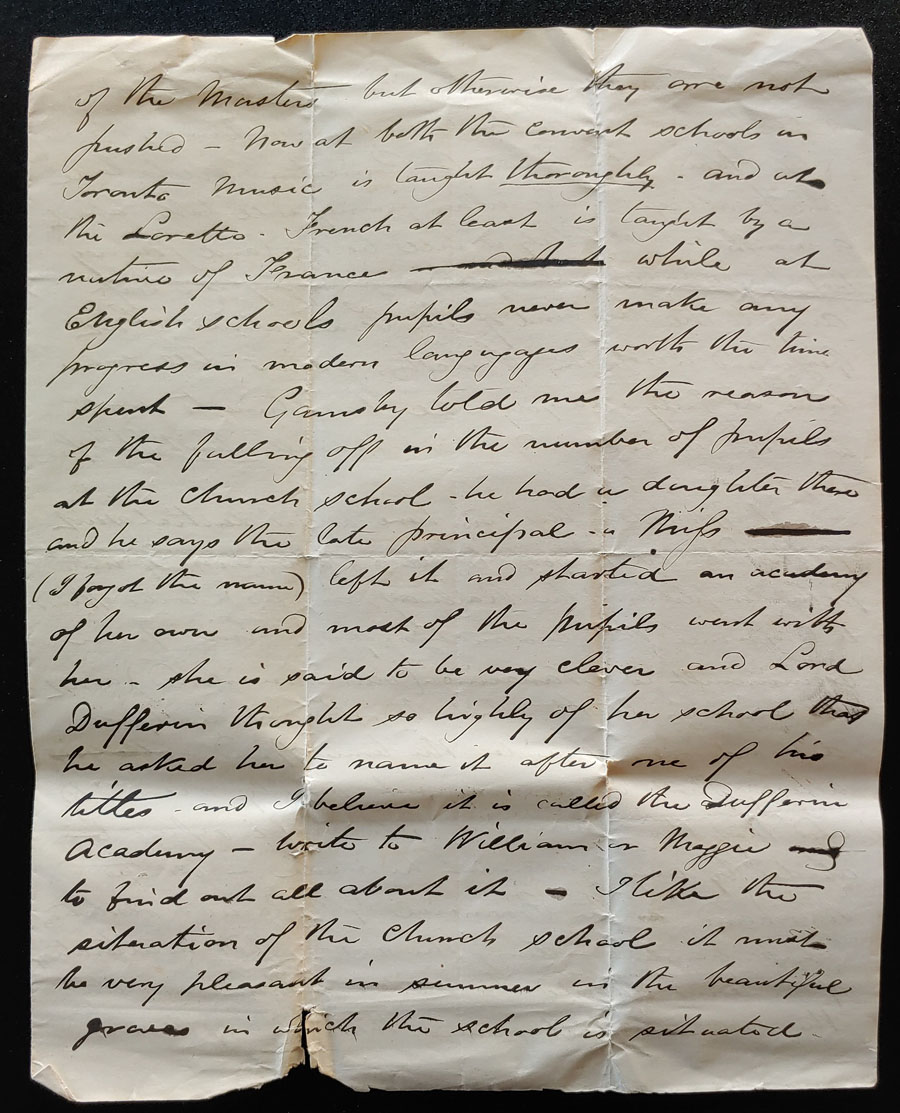 of the Masters but otherwise they are not
pushed - Now at both the convent schools in
Toronto Music is taught thoroughly - and at
the Loretto - French at least is taught by a
native of France while at
English schools pupils never make any
progress in modern languages worth the time
spent - Gamsby told me the reason
of the falling off in the number of pupils
at the church school - he had a daughter there
and he says the late principal - a Miss
(I forget the name) left it and started an academy
of her own and most of the pupils went with
her - she is said to be very clever and Lord
Dufferin thought so highly of her school that
he asked her to name it after one of his
titles - and I believe it is called the Dufferin
Academy - write to William or Maggie
to find out all about it - I like the
situation of the church school it must
be very pleasant in summer in the beautiful
in which the school is situated -